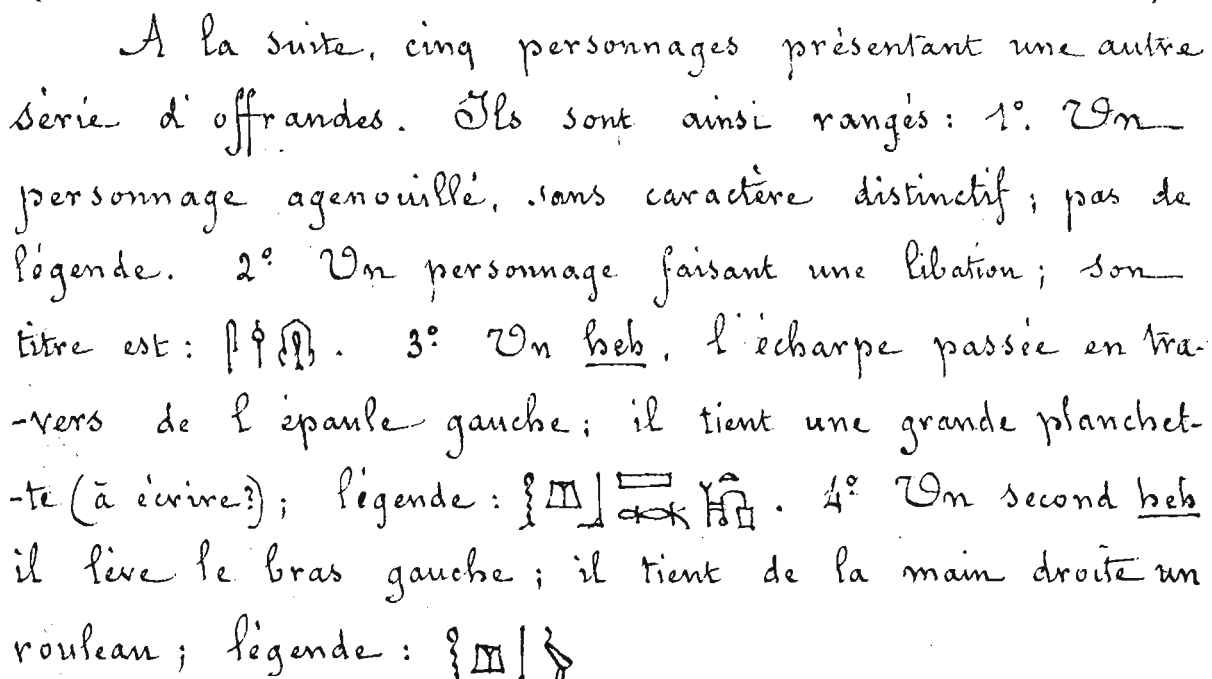 A la suite, cinq personnages présentant une autre
série d'offrandes. Ils sont ainsi rangés : 1º. Un
personnage agenouillé, sans caractère distinctif ; pas de
légende. 2º Un personnage faisant une libation ; son
titre est : . 3º Un heb, l'écharpe passée en tra-
-vers de l'épaule gauche ; il tient une grande planchet-
-te (à écrire?) ; légende : . 4º Un second heb
il lève le bras gauche ; il tient de la main droite un
rouleau ; légende :